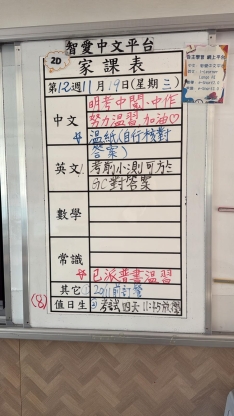 2D
智愛中文平台
家課表
第12週11月19日(星期三)
中文
明考中閱、中作
努力溫習,加油♡
☆溫紙(自行核對
答案)
英文
考前小測可於
GC對答案
數學
常識
☆已派普書溫習
其它
值日生
考試四天 11:45放學
(8)